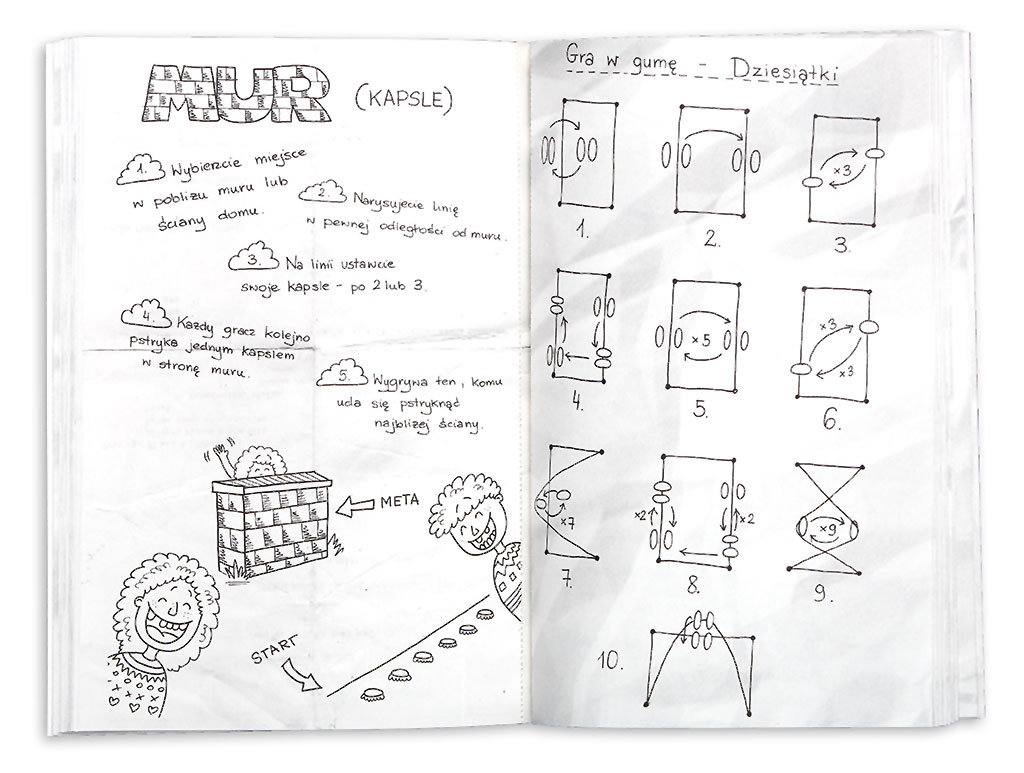 MUR (KAPSLE)
1. Wybierzcie miejsce
w pobliżu muru lub
ściany domu.
2. Narysujecie linię
w pewnej odległości od muru.
3. Na linii ustawcie
swoje kapsle - po 2 lub 3.
4. Każdy gracz kolejno
pstryka jednym kapslem
w stronę muru.
5. Wygrywa ten, komu
uda się pstryknąć
najbliżej ściany.
META
START
Gra w gumę - Dziesiątki
1.
2.
x3
3.
4.
x5
5.
x3
x3
6.
x7
7.
x2
x2
8.
x9
9.
10.